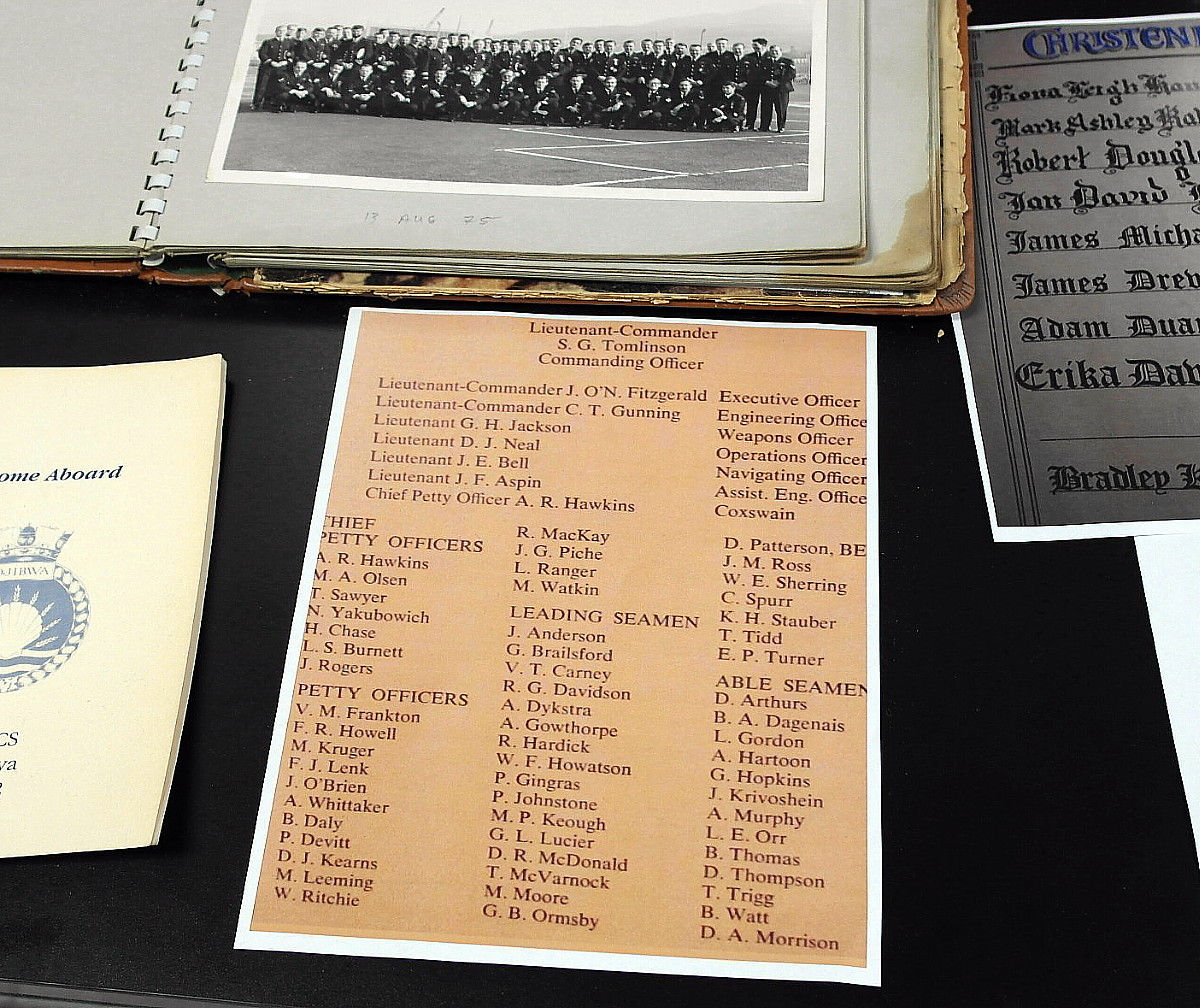 13 AUG 75
CHRISTEN
Fiona Leigh
Mark Ashley
Robert
Ian David
James
James
Adam
Erika
Bradley
ome Aboard
OJIBWA
CS
wa
Lieutenant-Commander
S. G. Tomlinson
Commanding Officer
Lieutenant-Commander J. O'N. Fitzgerald Executive Officer
Lieutenant-Commander C. T. Gunning Engineering Office
Lieutenant G. H. Jackson Weapons Officer
Lieutenant D. J. Neal Operations Officer
Lieutenant J. E. Bell Navigating Officer
Lieutenant J. F. Aspin Assist. Eng. Office
Chief Petty Officer A. R. Hawkins Coxswain
CHIEF
PETTY OFFICERS
A. R. Hawkins
M. A. Olsen
T. Sawyer
N. Yakubowich
H. Chase
L. S. Burnett
J. Rogers
PETTY OFFICERS
V. M. Frankton
F. R. Howell
M. Kruger
F. J. Lenk
J. O'Brien
A. Whittaker
B. Daly
P. Devitt
D. J. Kearns
M. Leeming
W. Ritchie
R. MacKay
J. G. Piche
L. Ranger
M. Watkin
LEADING SEAMEN
J. Anderson
G. Brailsford
V. T. Carney
R. G. Davidson
A. Dykstra
A. Gowthorpe
R. Hardick
W. F. Howatson
P. Gingras
P. Johnstone
M. P. Keough
G. L. Lucier
D. R. McDonald
T. McVarnock
M. Moore
G. B. Ormsby
D. Patterson, BE
J. M. Ross
W. E. Sherring
C. Spurr
K. H. Stauber
T. Tidd
E. P. Turner
ABLE SEAMEN
D. Arthurs
B. A. Dagenais
L. Gordon
A. Hartoon
G. Hopkins
J. Krivoshein
A. Murphy
L. E. Orr
B. Thomas
D. Thompson
T. Trigg
B. Watt
D. A. Morrison